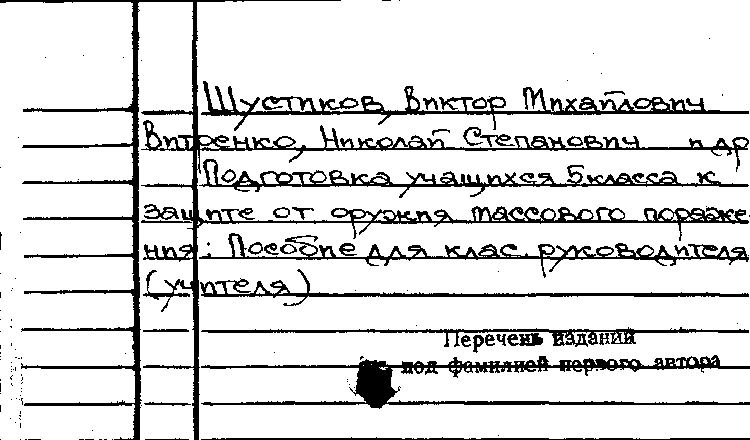 Шустиков, Виктор Михайлович
Витренко, Николай Степанович и др
Подготовка учащихся 5 класса к
защите от оружия массового пораже-
ния: Пособие для клас. руководителя
(учителя)
Перечень изданий
см. под фамилией первого автора